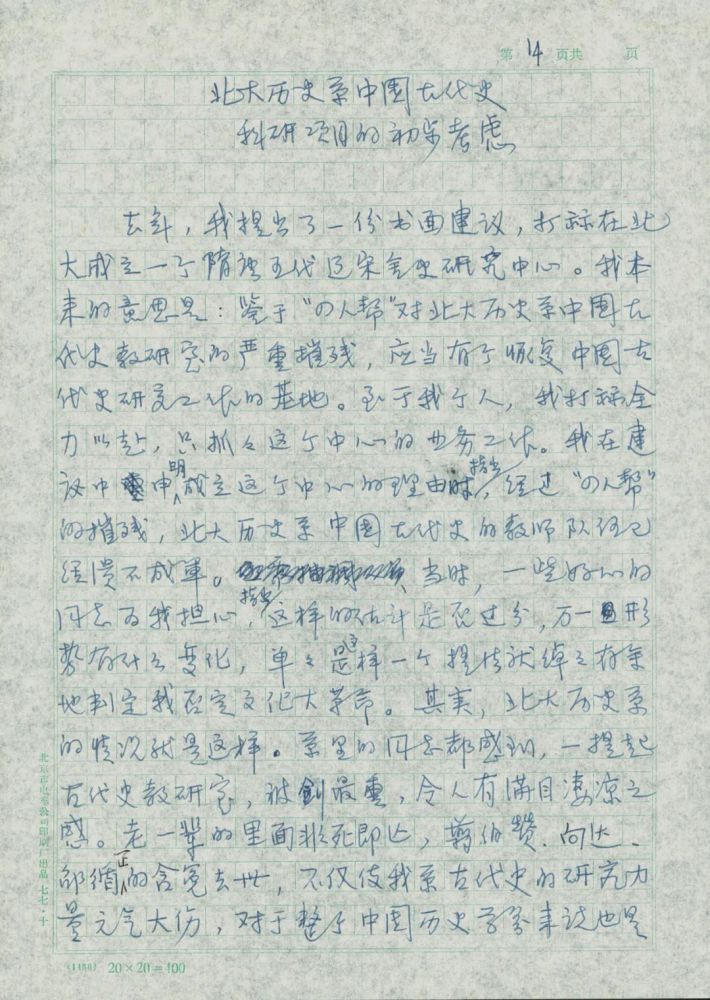 第 14 页共 页
北大历史系中国古代史
科研项目的初步考虑
去年，我提出了一份书面建议，打算在北
大成立一个隋唐五代辽宋金史研究中心。我本
来的意思是：鉴于“四人帮”对北大历史系中国古
代史教研室的严重摧残，应当有个恢复中国古
代史研究工作的基地。至于我个人，我打算全
力以赴，只抓这个中心的业务工作。我在建
议中申明成立这个中心的理由时指出，经过“四人帮”
的摧残，北大历史系中国古代史的教师队伍已
经溃不成军。当时，一些好心的
同志为我担心，指出这样的估计是否过分，万一形
势有什么变化，单单是这样一个提法就绰绰有余
地判定我否定文化大革命。其实，北大历史系
的情况就是这样。系里的同志都感到，一提起
古代史教研室，被创最重，令人有满目凄凉之
感。老一辈的里面非死即亡，翦伯赞、向达、
邵循正的含冤去世，不仅使我系古代史的研究力
量元气大伤，对于整个中国历史学界来说也是
20×20=400
北京市电车公司印刷厂出品 七七·十